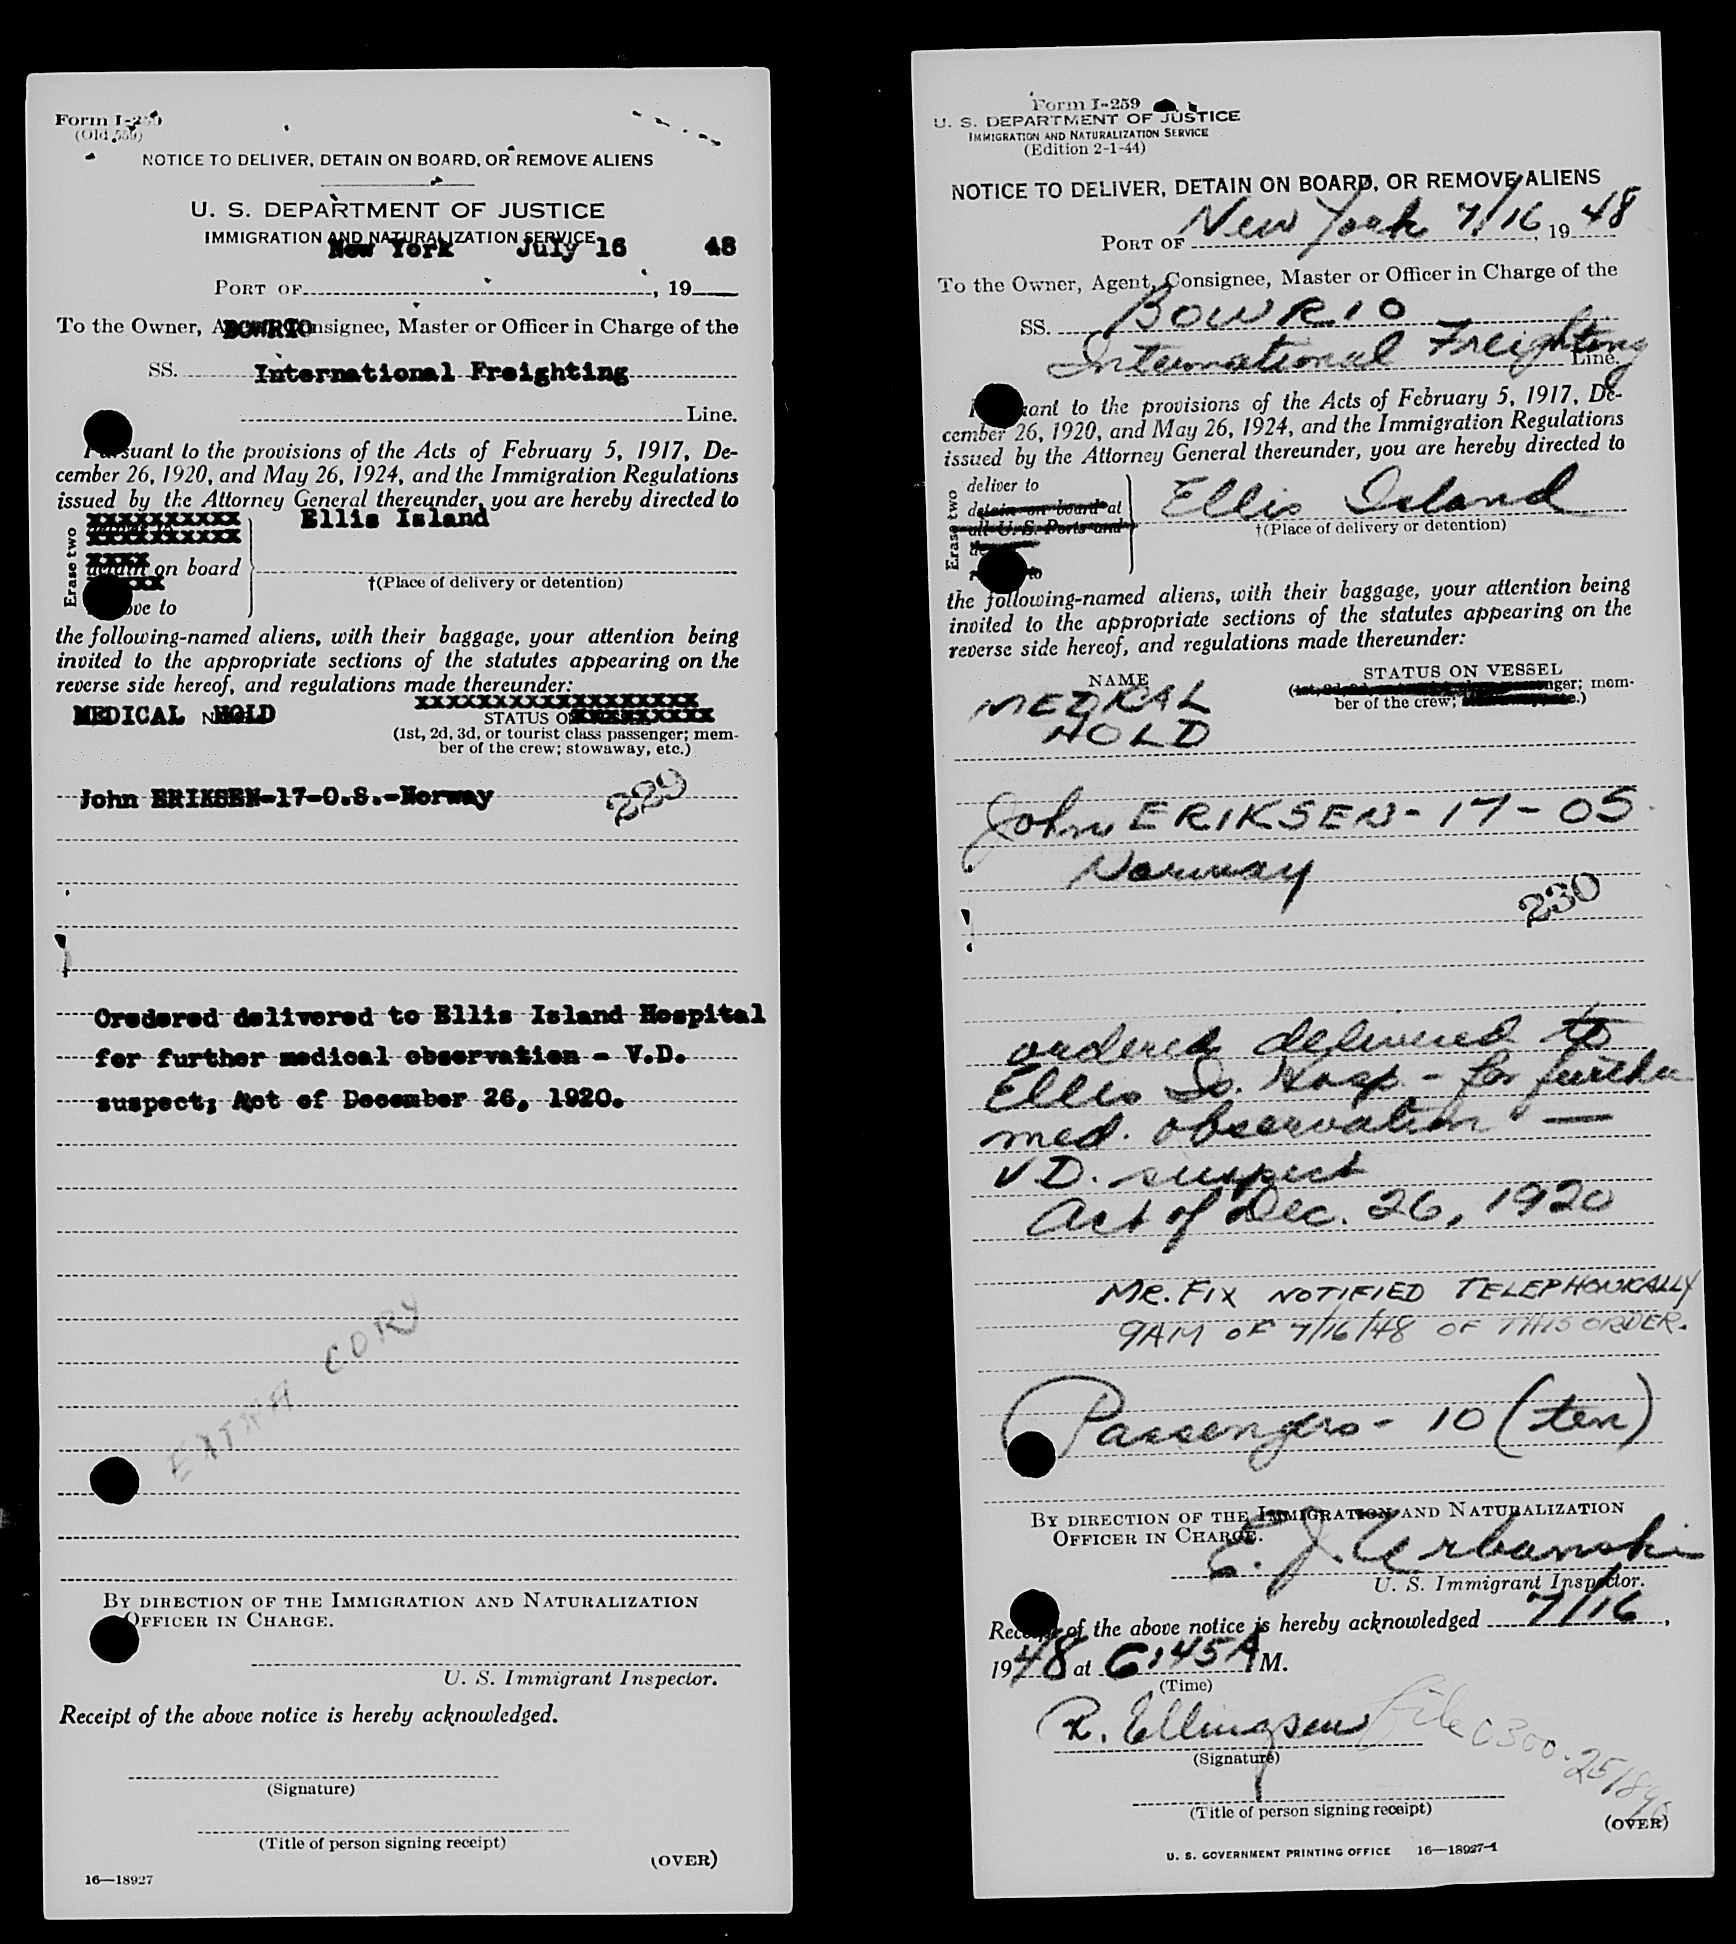 Form I-259
(Old 559)
NOTICE TO DELIVER, DETAIN ON BOARD, OR REMOVE ALIENS
U. S. DEPARTMENT OF JUSTICE
IMMIGRATION AND NATURALIZATION SERVICE
New York July 16 48
PORT OF , 19
To the Owner, A BOWRIO onsignee, Master or Officer in Charge of the
SS. International Freighting
Line.
Pursuant to the provisions of the Acts of February 5, 1917, De-
cember 26, 1920, and May 26, 1924, and the Immigration Regulations
issued by the Attorney General thereunder, you are hereby directed to
Ellis Island
Erase two
xxxxxxxxxx
xxxxxxxxxx
detain on board
†(Place of delivery or detention)
ove to
the following-named aliens, with their baggage, your attention being
invited to the appropriate sections of the statutes appearing on the
reverse side hereof, and regulations made thereunder:
MEDICAL HOLD
STATUS O
(1st, 2d, 3d, or tourist class passenger; mem-
ber of the crew; stowaway, etc.)
John ERIKSEN-17-O.S.-Norway 229
Oredered delivered to Ellis Island Hospital
for further medical observation - V.D.
suspect; Act of December 26, 1920.
EXTRA COPY
BY DIRECTION OF THE IMMIGRATION AND NATURALIZATION
OFFICER IN CHARGE.
U. S. Immigrant Inspector.
Receipt of the above notice is hereby acknowledged.
(Signature)
(Title of person signing receipt)
(OVER)
16—18927
Form I-259
U. S. DEPARTMENT OF JUSTICE
IMMIGRATION AND NATURALIZATION SERVICE
(Edition 2-1-44)
NOTICE TO DELIVER, DETAIN ON BOARD, OR REMOVE ALIENS
PORT OF New York 7/16, 19 48
To the Owner, Agent, Consignee, Master or Officer in Charge of the
SS. BOWRIO
International Freighting Line.
Pursuant to the provisions of the Acts of February 5, 1917, De-
cember 26, 1920, and May 26, 1924, and the Immigration Regulations
issued by the Attorney General thereunder, you are hereby directed to
Erase two
deliver to
detain on board at
all U. S. Ports and
Ellis Island
†(Place of delivery or detention)
to
the following-named aliens, with their baggage, your attention being
invited to the appropriate sections of the statutes appearing on the
reverse side hereof, and regulations made thereunder:
NAME STATUS ON VESSEL
MEDICAL
HOLD
(1st, 2d, 3d, nger; mem-
ber of the crew; .)
John ERIKSEN - 17 - OS.
Norway
230
ordered delivered to
Ellis Is. Hosp - for further
med. observation —
V D. suspect
Act of Dec. 26, 1920
MR. FIX NOTIFIED TELEPHONICALLY
9AM OF 7/16/48 OF THIS ORDER.
Passengers - 10 (ten)
BY DIRECTION OF THE IMMIGRATION AND NATURALIZATION
OFFICER IN CHARGE.
E. J. Urbanski
U. S. Immigrant Inspector.
Receipt of the above notice is hereby acknowledged 7/16,
1948 at 6:45A M.
(Time)
R. Ellingsen
(Signature)
file 0300-251896
(Title of person signing receipt)
(OVER)
U. S. GOVERNMENT PRINTING OFFICE 16—18927-1